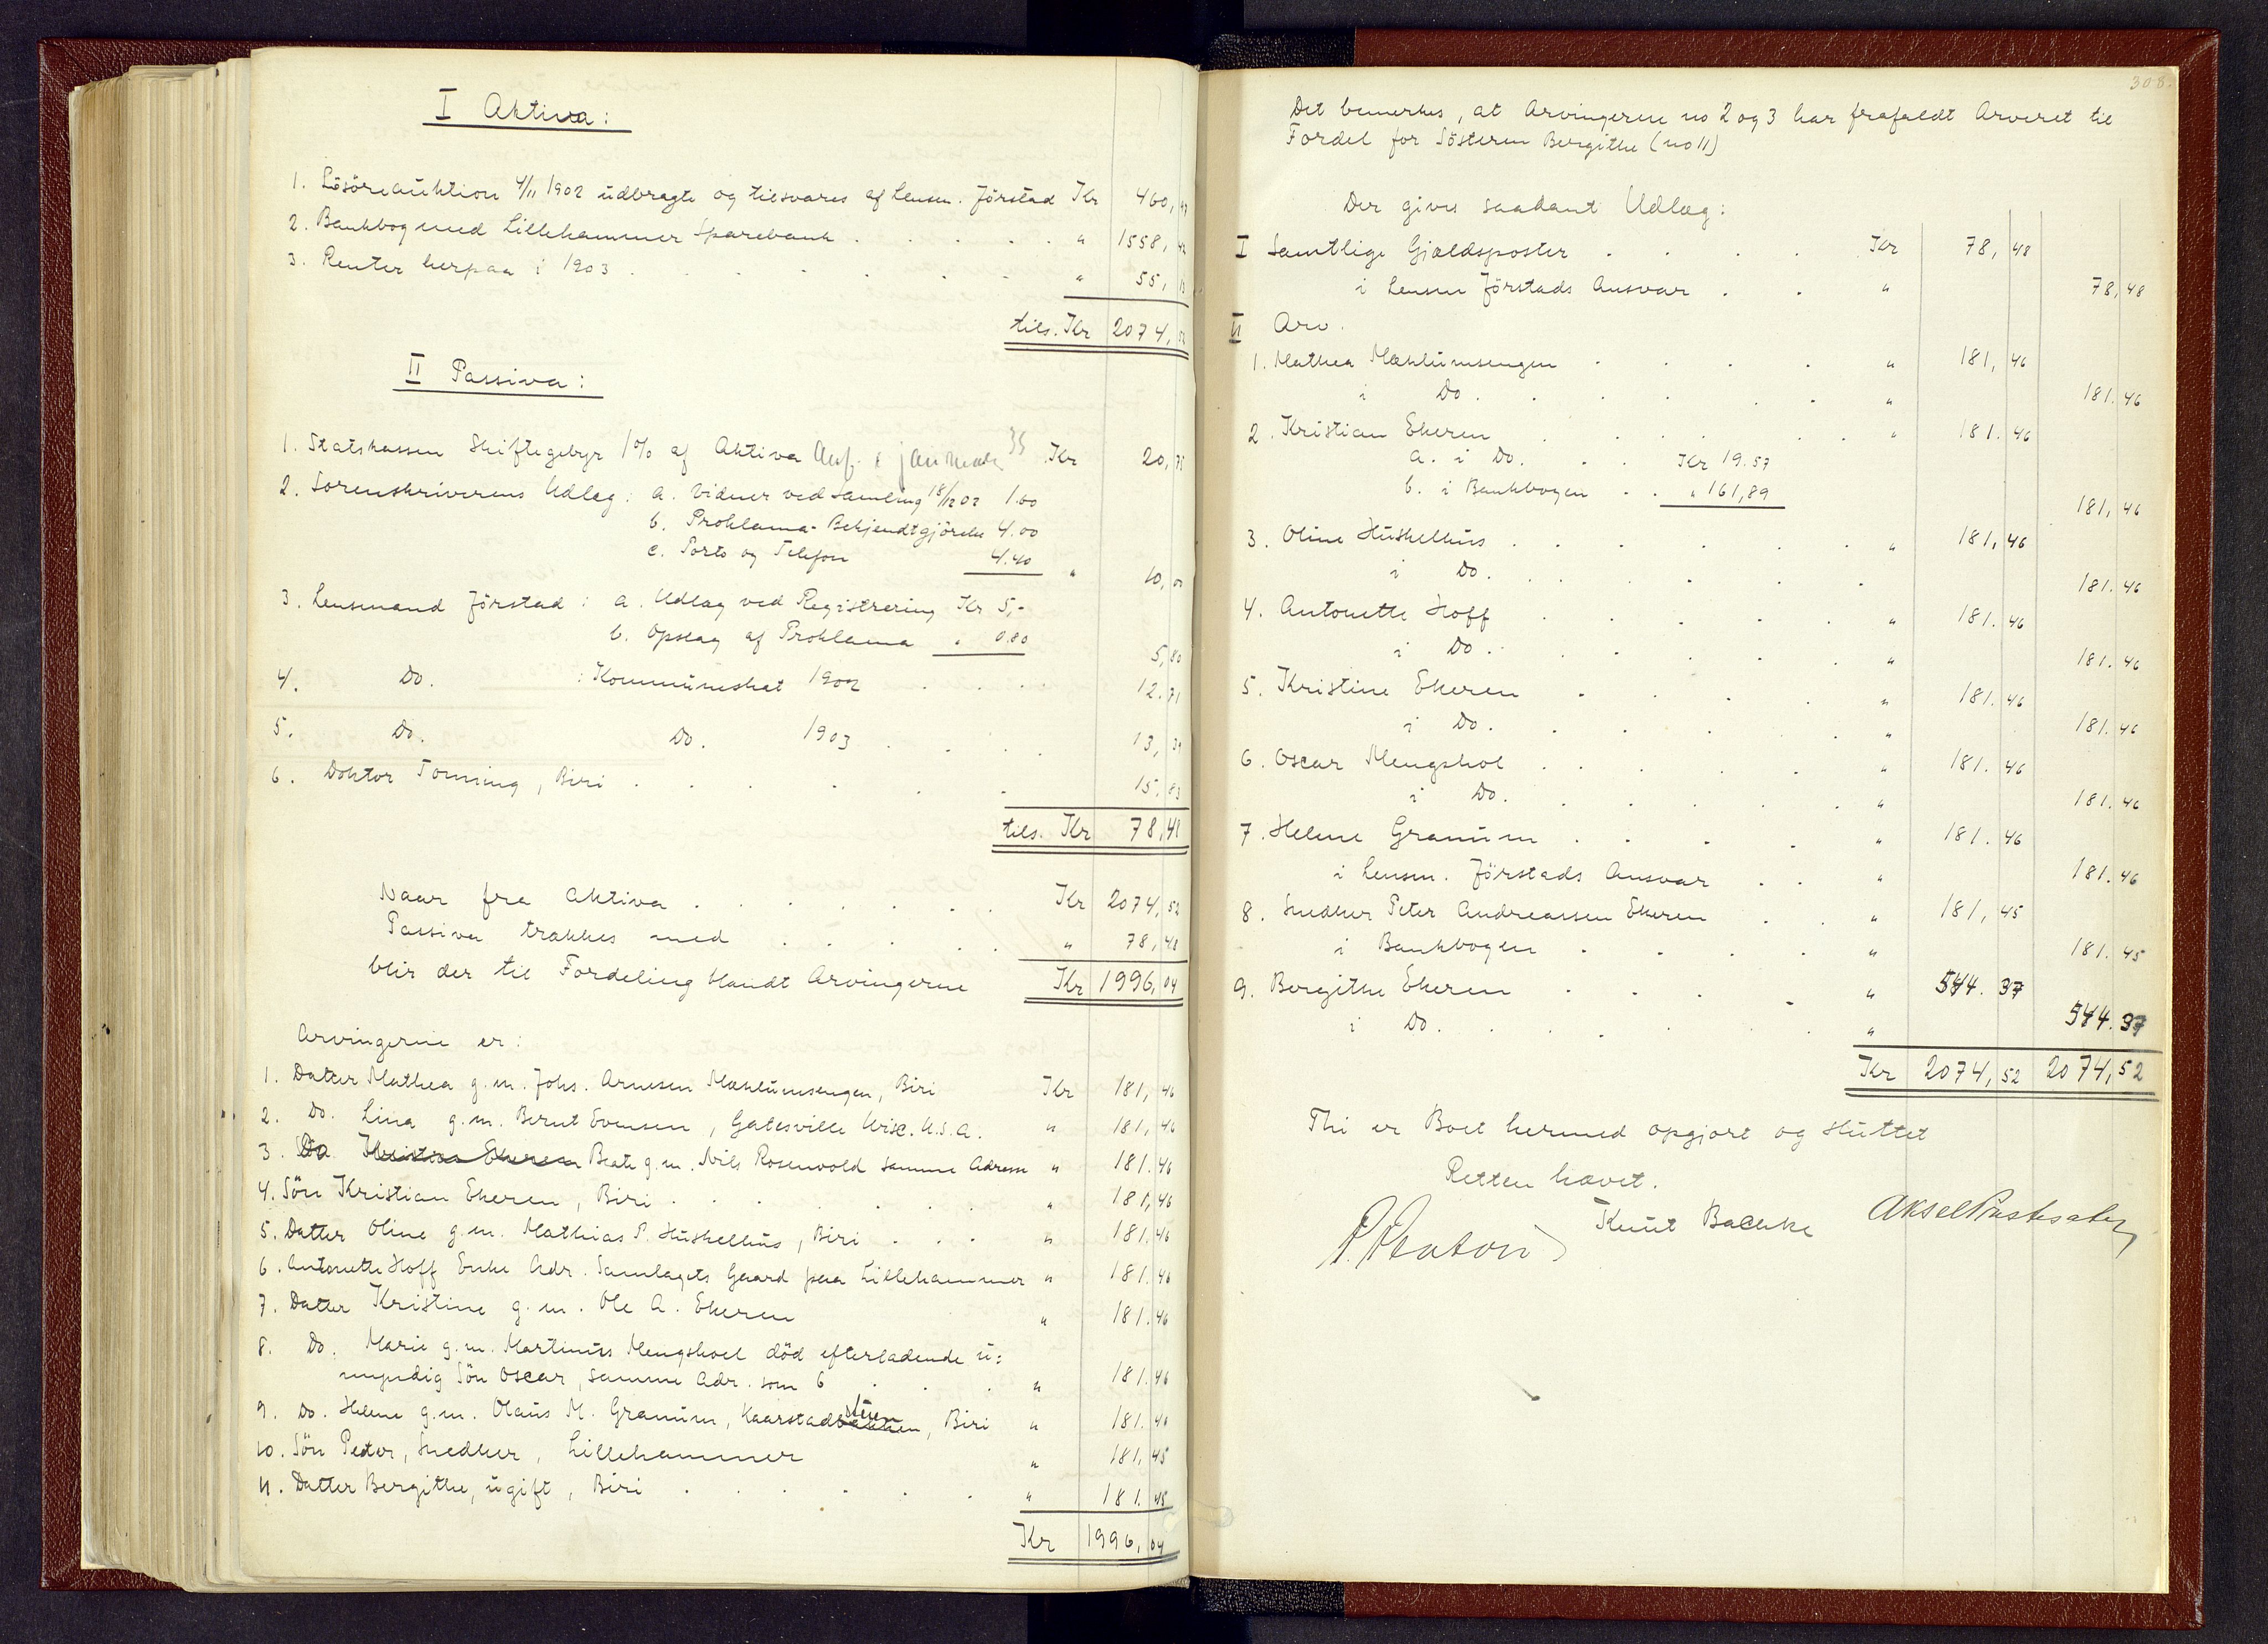 I Aktiva:
1. Lösöreauktion 4/11 1902 udbragte og tilsvares af Lensm. Jörstad Kr 460,97
2. Bankbog med Lillehammer Sparebank . . . . . " 1558,42
3. Renter herpaa i 1903 . . . . . . " 55,13
tils. Kr 2074,52
II Passiva:
1. Statskassen Skiftegebyr 1% af Aktiva Kr 20,75
2. Sorenskriverens Udlæg: a. Vidner ved Samling 18/12 02 1.60
b. Proklama-Bekjendtgjörelse 4.00
c. Porto og Telefon 4.40 " 10,00
3. Lensmand Jörstad: a. Udlæg ved Registrering Kr 5,-
b. Opslag af Proklama " 0.80
5,80
4. Do. : Kommuneskat 1902 . . . . 12.71
5. Do. Do. 1903 . . . . 13,39
6. Doktor Tønning, Biri . . . . . . 15.83
tils. Kr 78,48
Naar fra Aktiva . . . . . . . Kr 2074,52
Passiva trækkes med . . . . . " 78,48
blir der til Fordeling blandt Arvingerne Kr 1996,04
Arvingerne er:
1. Datter Mathea g.m. Johs. Arnesen Mæhlumsengen, Biri Kr 181,46
2. Do. Lina g.m. Bernt Evensen, Galesville Wisc. U.S.A. " 181,46
3. Do Kristian Ekeren Beate g.m. Nils Rosenvold samme Adresse " 181.46
4. Sön Kristian Ekeren, Biri . . . . . . " 181,46
5. Datter Oline g.m. Mathias P. Huskelhus, Biri . . . " 181.46
6. Antonette Hoff Enke Adr. Samlagets Gaard paa Lillehammer " 181.46
7. Datter Kristine g.m. Ole A. Ekeren " 181.46
8. Do. Marie g.m. Martinus Mengshoel död efterladende u=
myndig Sön Oscar, samme Adr. som 6 . . . " 181.46
9. Do. Helene g.m. Olaus M. Granum, Kaarstad, Biri " 181.46
10. Sön Peder, Snedker, Lillehammer " 181,45
11. Datter Bergithe, ugift, Biri . . . . . . " 181.45
Kr 1996,04
308.
Det bemerkes, at Arvingerne no 2 og 3 har frafaldt Arveret til
Fordel for Sösteren Bergithe (no 11)
Der gives saadant Udlæg:
I Samtlige Gjældsposter . . . . Kr 78,48
i Lensm Jörstads Ansvar . . " 78,48
II Arv.
1. Mathea Mæhlumsengen . . . . " 181,46
i Do. . . . . . " 181.46
2. Kristian Ekeren . . . . . . " 181.46
a. i Do. . . Kr 19.57
b. i Bankbogen . . " 161,89
181,46
3. Oline Huskelhus . . . . . . " 181,46
i Do. . . . . . 181.46
4. Antonette Hoff . . . . . " 181.46
i Do. . . . . . " 181.46
5. Kristine Ekeren . . . " 181.46
i Do. . . . . . " 181.46
6. Oscar Mengshol . . . . . " 181.46
i Do. . . . . . " 181.46
7. Helene Granum . . . . " 181.46
i Lensm. Jörstads Ansvar . . " 181.46
8. Snedker Peter Andreassen Ekeren . . " 181,45
i Bankbogen . . . . " 181.45
9. Bergithe Ekeren . . . . " 544.37
i Do. . . . . . " 544.37
Kr 2074,52 2074,52
Thi er Boet hermed opgjort og sluttet
Retten hævet.
Knut Backe